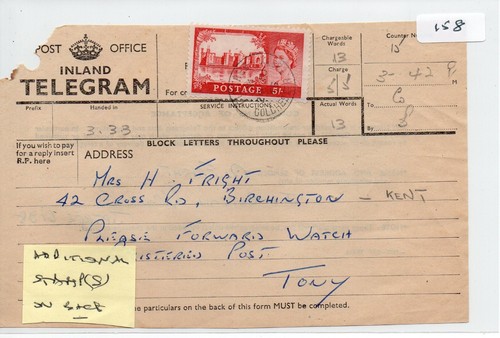 158
POST OFFICE
INLAND
TELEGRAM
For
POSTAGE 5/-
SERVICE INSTRUCTIONS
Chargeable
Words
13
Charge
5/5
Actual Words
13
Counter
15
3-42 P
M
To
By
Prefix
Handed in
3.33
If you wish to pay
for a reply insert
R.P. here
BLOCK LETTERS THROUGHOUT PLEASE
ADDRESS
MRS H. FRIGHT
42 CROSS RD, BIRCHINGTON - KENT
PLEASE FORWARD WATCH
REGISTERED POST
TONY
ADDITIONAL
STAMP(S)
ON BACK
he particulars on the back of this form MUST be completed.